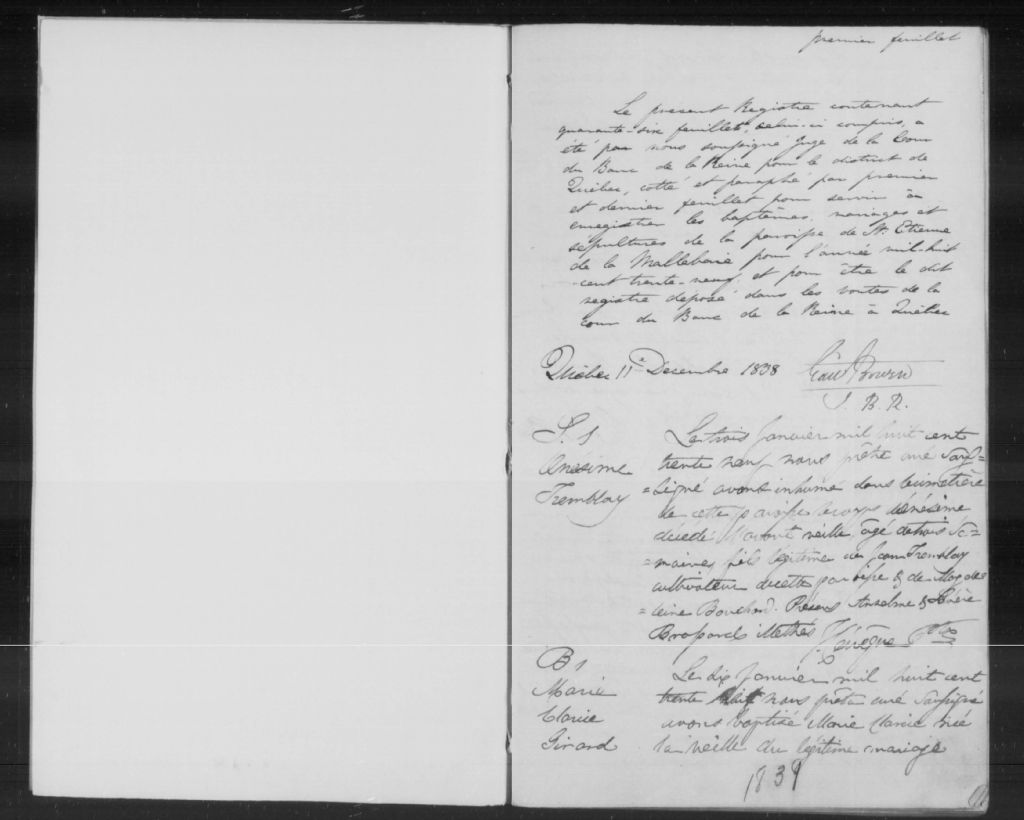 premier feuillet
Le présent Registre contenant
quarante-six feuillets, celui-ci compris, a
été par nous soussigné Juge de la Cour
du Banc de la Reine pour le district de
Québec, cotté et paraphé par premier
et dernier feuillet pour servir à
enregistrer les baptêmes, mariages et
sépultures de la paroisse de St. Etienne
de la Mallebaie pour l'année mil-huit
-cent trente-neuf, et pour être le dit
registre déposé dans les voutes de la
cour du Banc de la Reine à Québec
Québec 11e Decembre 1838
J. B. R.
S. 1
Onésime
Tremblay
Le trois Janvier mil huit cent
trente neuf nous prêtre curé Sous=
=signé avons inhumé dans le cimetière
de cette paroisse le corps d'Onésime
décédé l'avant veille, âgé de trois Se=
=maines, fils légitime de Jean Tremblay
cultivateur de cette paroisse & de Magde=
=leine Bouchard. Présens Anselme &
J. Levêque Ptre
B 1
Marie
Clarice
Girard
Le dix Janvier mil huit cent
trente neuf nous prêtre curé soussigné
avons baptisé Marie Clarice née
la veille du légitime mariage
1839